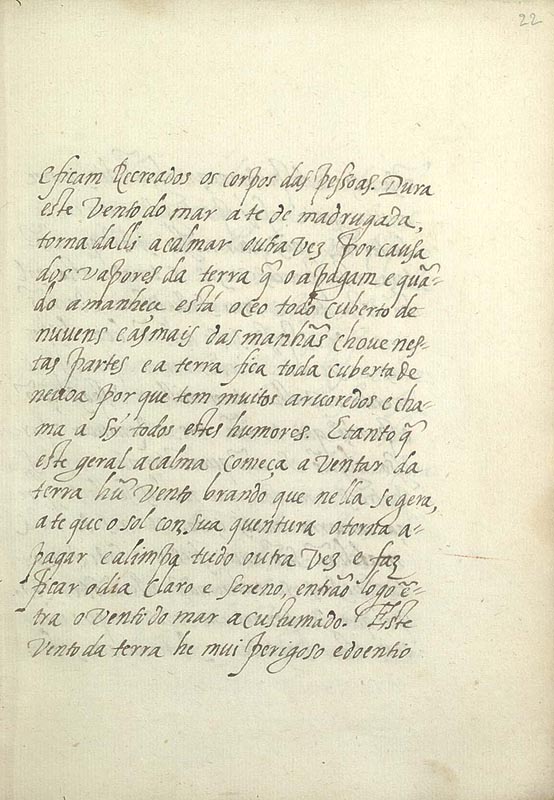 22
e ficam Recreados os corpos das pessoas. Dura
este Vento do mar a te de madrugada,
torna dalli a calmar outra Vez por causa
dos vapores da terra q̃ o apagam e quã-
do amanhece está o ceo todo cuberto de
nuvens e as mais das manhãs chove nes-
tas partes e a terra fica toda cuberta de
nevoa por que tem muitos arvoredos e cha-
ma a sý todos estes humores. E tanto q̃
este geral acalma começa a ventar da
terra hũ Vento brando que nella se gera,
a te que o sol con sua quentura o torna a-
pagar e alimpa tudo outra Vez e faz
ficar o dia claro e sereno, entrão logo ẽ-
tra o Vento do mar acustumado. Este
Vento da terra he mui perigoso e doentio